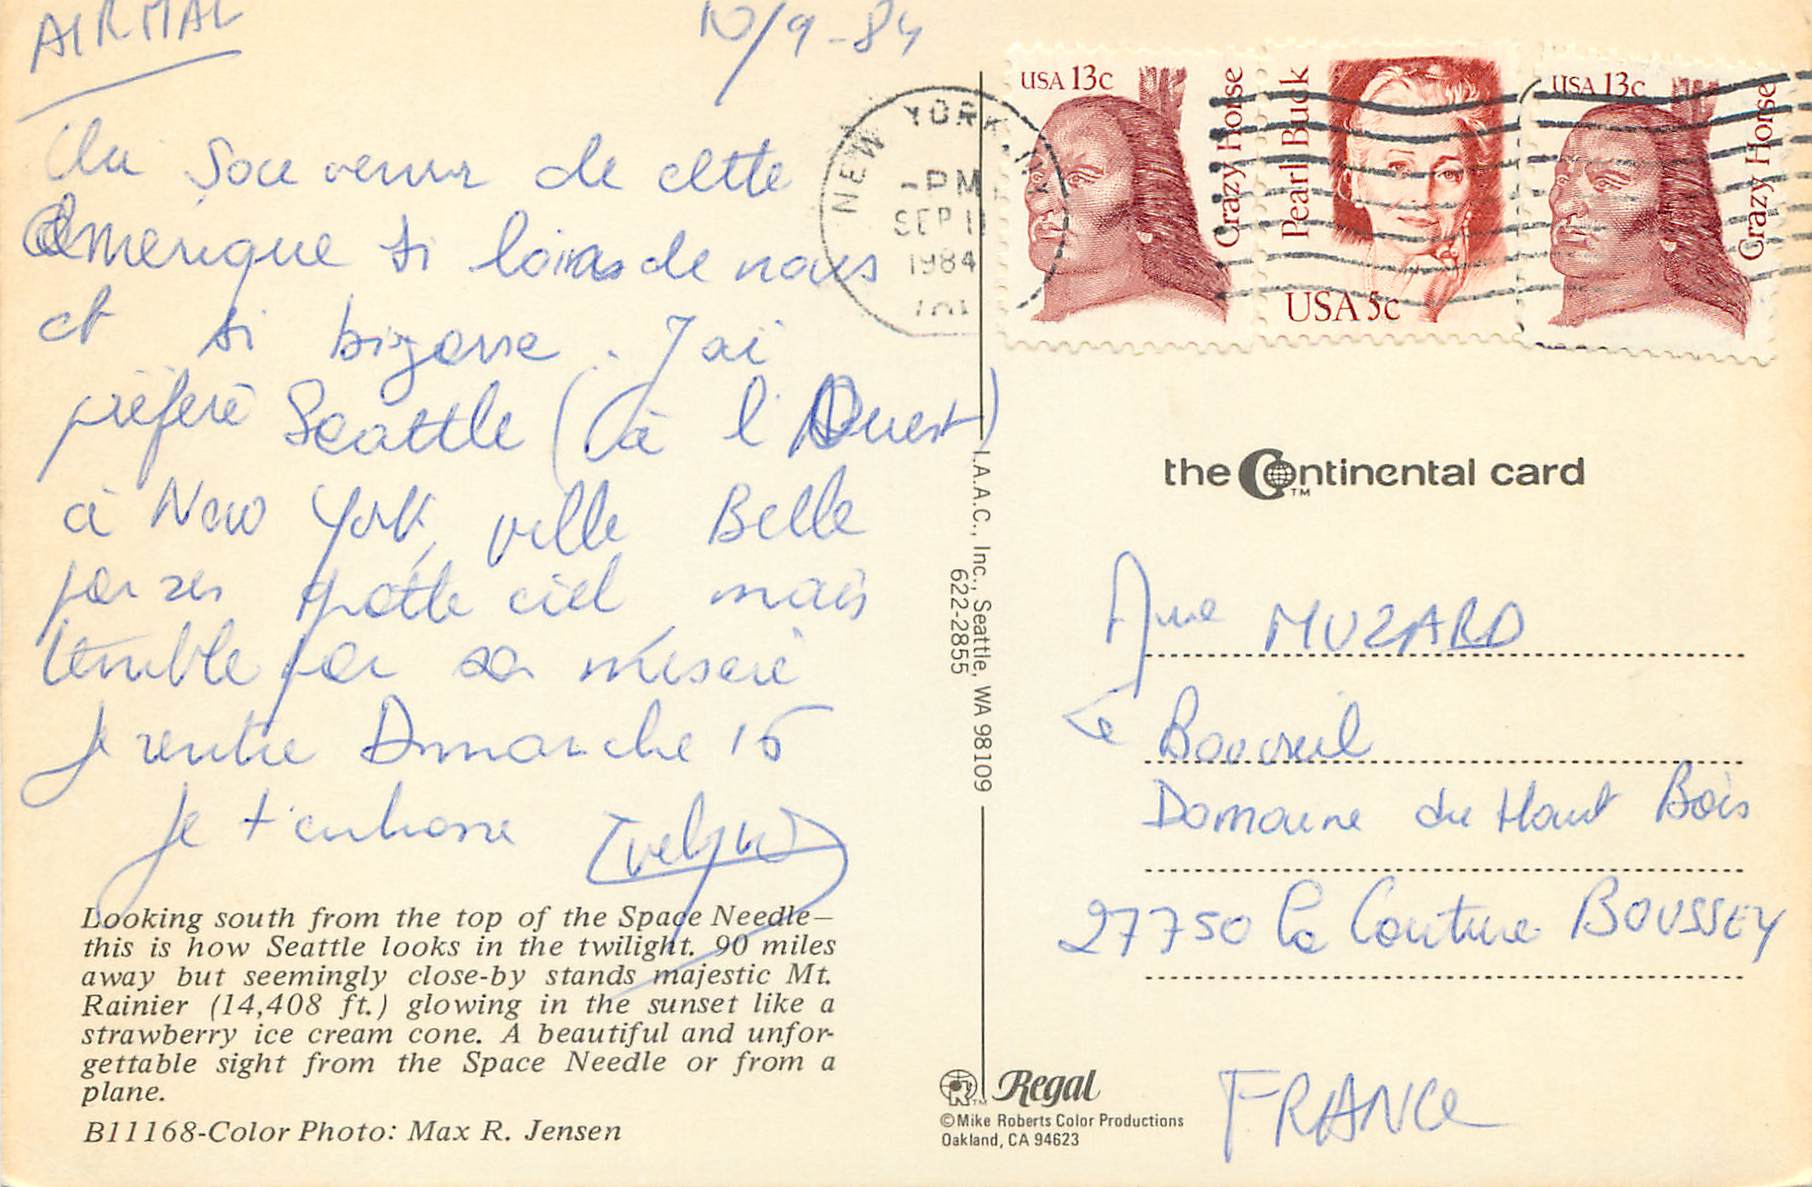 AIRMAL
10/9-84
Un Souvenir de cette
Amerique si loin de nous
et si bizarre. J'ai
préféré Seattle (à l'Ouest)
à New York, ville Belle
par ses gratte ciel mais
terrible par sa misere
Je rentre Dimanche 16
Je t'embrasse Evelyne
Looking south from the top of the Space Needle—
this is how Seattle looks in the twilight. 90 miles
away but seemingly close-by stands majestic Mt.
Rainier (14,408 ft.) glowing in the sunset like a
strawberry ice cream cone. A beautiful and unfor-
gettable sight from the Space Needle or from a
plane.
B11168-Color Photo: Max R. Jensen
NEW YORK, N
-PM
SEP 11
1984
USA 13c
Crazy Horse
Pearl Buck
USA 5c
USA 13c
Crazy Horse
I.A.A.C., Inc., Seattle, WA 98109
622-2855
the Continental card™
MUZARD
Le Bouvreuil
Domaine du Haut Bois
27750 La Couture BOUSSEY
FRANCE
Regal
©Mike Roberts Color Productions
Oakland, CA 94623